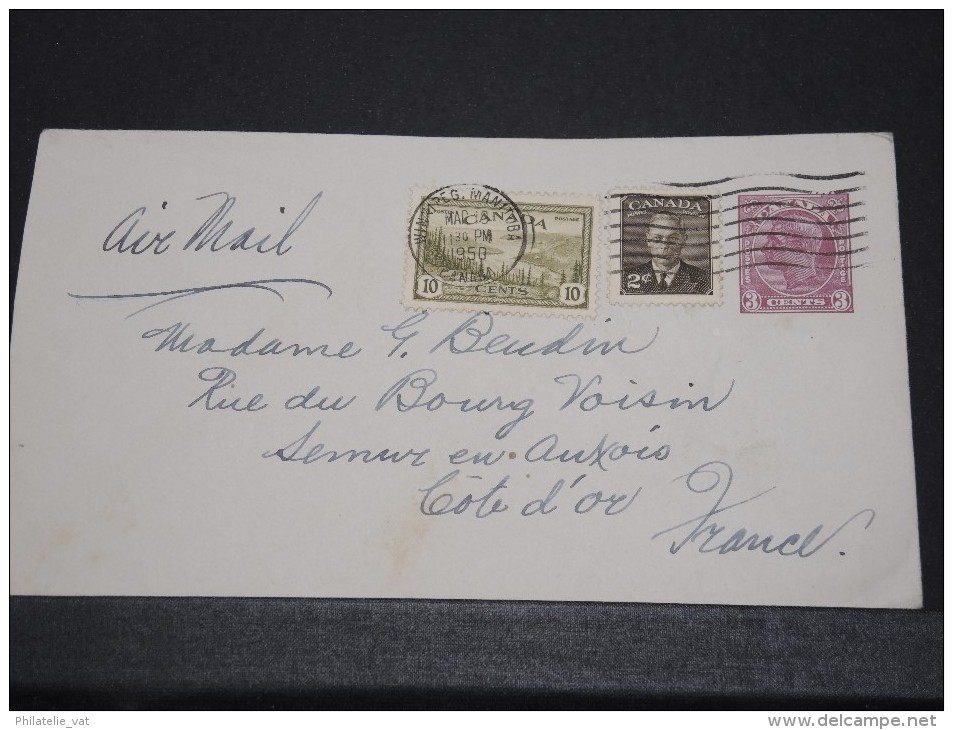 Air Mail
WINNIPEG, MANITOBA
MAR
PM
1950
CANADA
CANADA
POSTAGE
10 CENTS 10
CANADA
2¢
CANADA
POSTES POSTAGE
3 CENTS 3
Madame G. Beudin
Rue du Bourg Voisin
Semur en Auxois
Côte d'or
France.
Philatelie_vat
www.delcampe.net